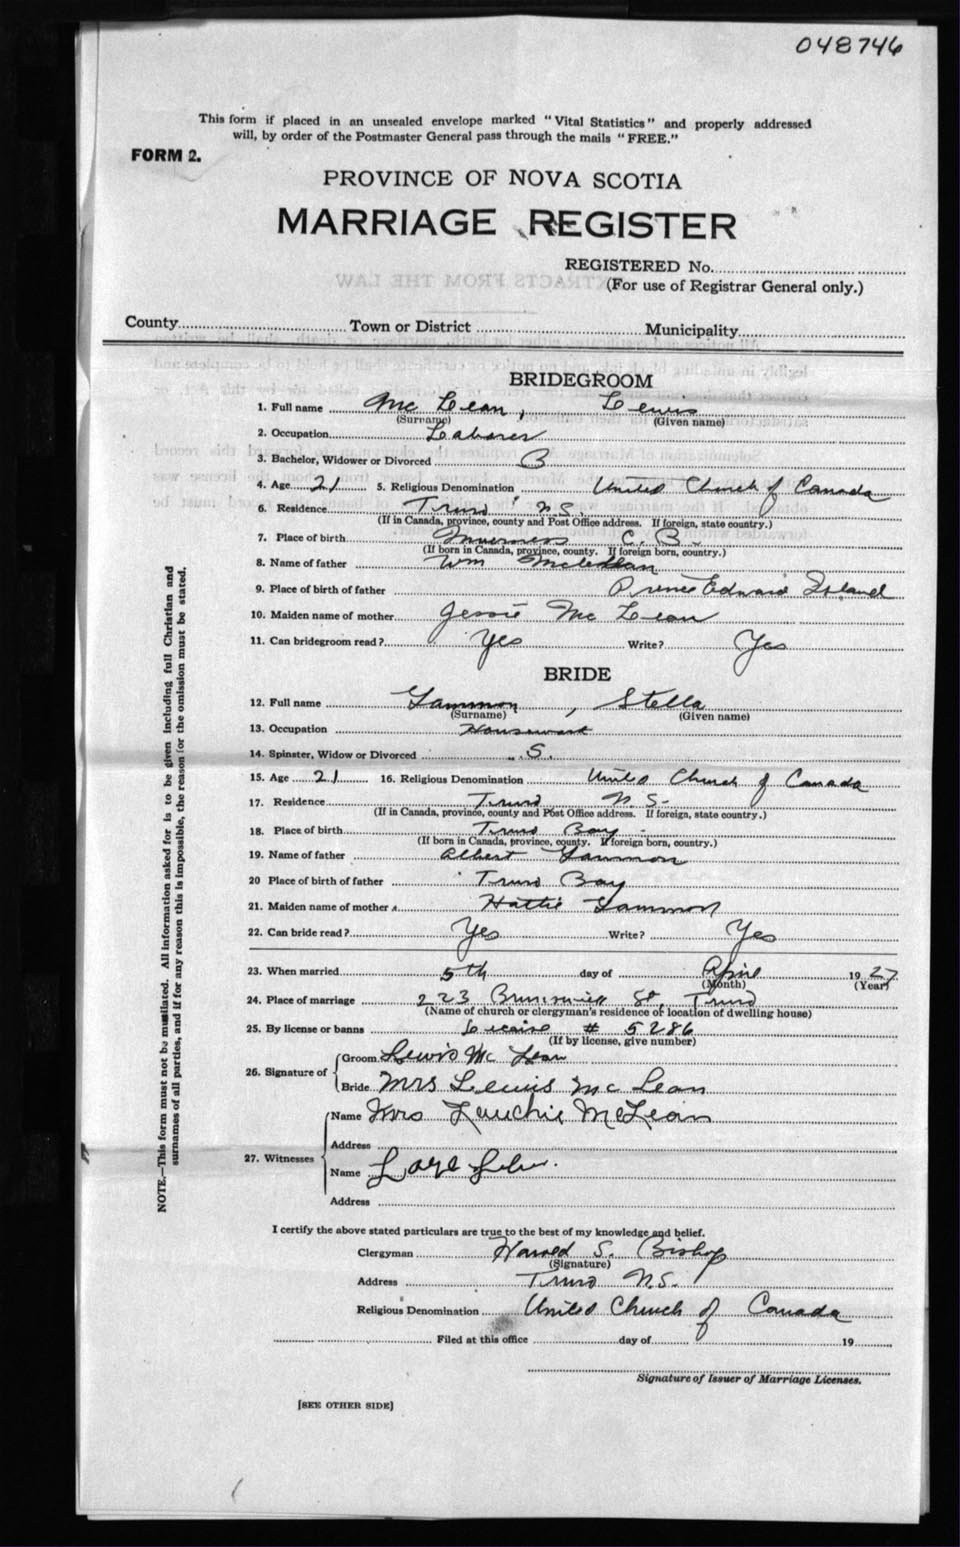 048746
This form if placed in an unsealed envelope marked "Vital Statistics" and properly addressed
will, by order of the Postmaster General pass through the mails "FREE."
FORM 2.
PROVINCE OF NOVA SCOTIA
MARRIAGE REGISTER
REGISTERED No.
(For use of Registrar General only.)
County Town or District Municipality
BRIDEGROOM
1. Full name McLean, Lewis
(Surname) (Given name)
2. Occupation Laborer
3. Bachelor, Widower or Divorced B
4. Age 21 5. Religious Denomination United Church of Canada
6. Residence Truro N.S.
(If in Canada, province, county and Post Office address. If foreign, state country.)
7. Place of birth Inverness C. B.
(If born in Canada, province, county. If foreign born, country.)
8. Name of father Wm
9. Place of birth of father Prince Edward Island
10. Maiden name of mother Jessie McLean
11. Can bridegroom read? Yes Write? Yes
BRIDE
12. Full name Gammon, Stella
(Surname) (Given name)
13. Occupation Housework
14. Spinster, Widow or Divorced S.
15. Age 21 16. Religious Denomination United Church of Canada
17. Residence Truro N. S.
(If in Canada, province, county and Post Office address. If foreign, state country.)
18. Place of birth Truro Bay
(If born in Canada, province, county. If foreign born, country.)
19. Name of father Albert Gammon
20 Place of birth of father Truro Bay
21. Maiden name of mother Hattie Gammon
22. Can bride read? Yes Write? Yes
23. When married 5th day of April 1927
(Month) (Year)
24. Place of marriage 223 Brunswick St, Truro
(Name of church or clergyman's residence of location of dwelling house)
25. By license or banns License # 5286
(If by license, give number)
26. Signature of
Groom Lewis McLean
Bride Mrs Lewis McLean
27. Witnesses
Name Mrs McLean
Address
Name
Address
I certify the above stated particulars are true to the best of my knowledge and belief.
Clergyman Harold S. Bishop
(Signature)
Address Truro N.S.
Religious Denomination United Church of Canada
Filed at this office day of 19
Signature of Issuer of Marriage Licenses.
[SEE OTHER SIDE]
NOTE.—This form must not be mutilated. All information asked for is to be given including full Christian and
surnames of all parties, and if for any reason this is impossible, the reason for the omission must be stated.